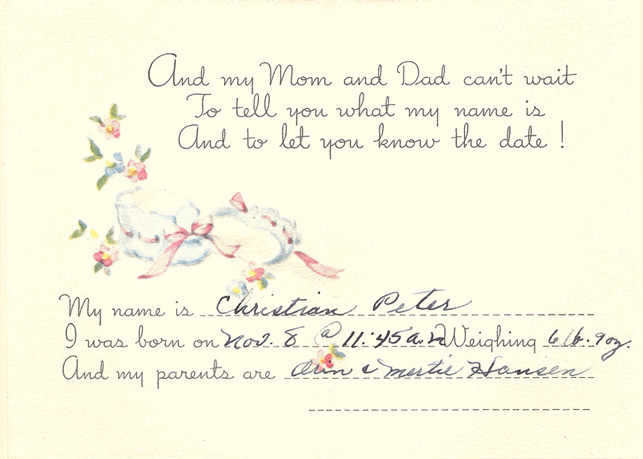 And my Mom and Dad can't wait
To tell you what my name is
And to let you know the date!
My name is Christian Peter
I was born on Nov. 8 @ 11:45 a.m Weighing 6 lb. 9 oz.
And my parents are Orin & Mertie Hansen